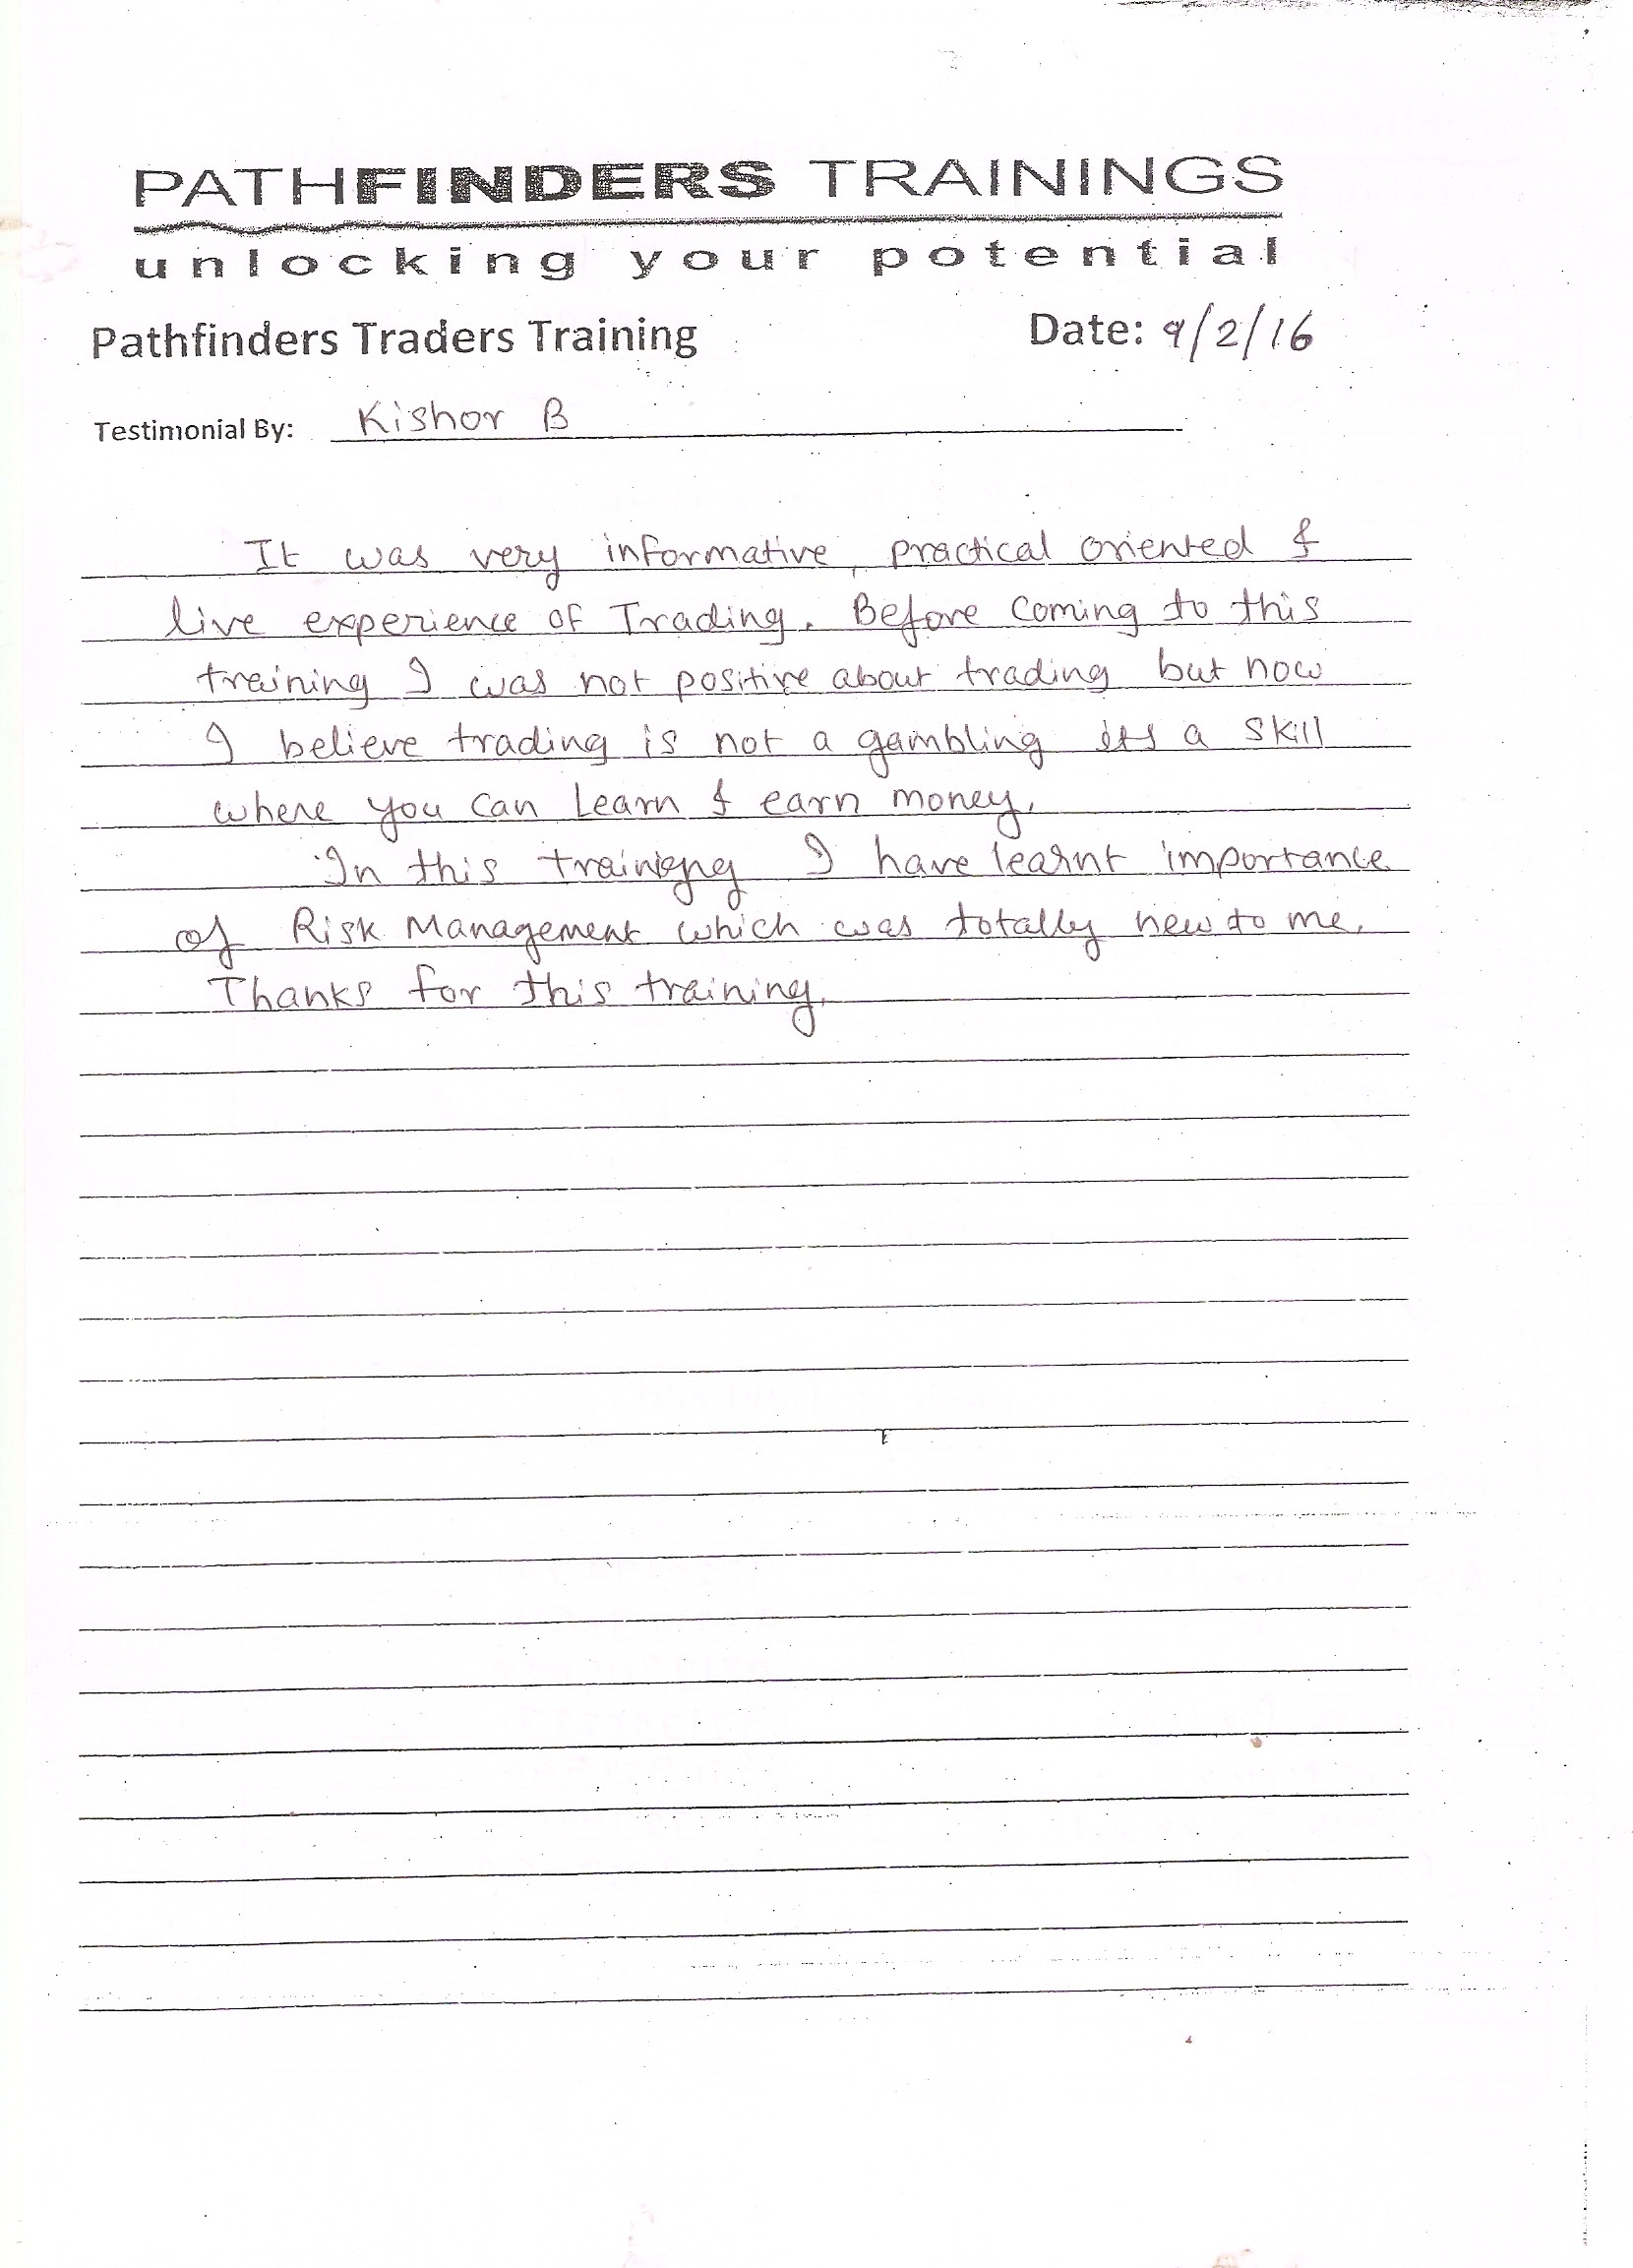 PATHFINDERS TRAININGS
unlocking your potential
Pathfinders Traders Training Date: 9/2/16
Testimonial By: Kishor B
It was very informative, practical oriented &
live experience of Trading. Before coming to this
training I was not positive about trading but now
I believe trading is not a gambling its a skill
where you can learn & earn money.
In this trainigng I have learnt importance
of Risk Management which was totally new to me.
Thanks for this training.